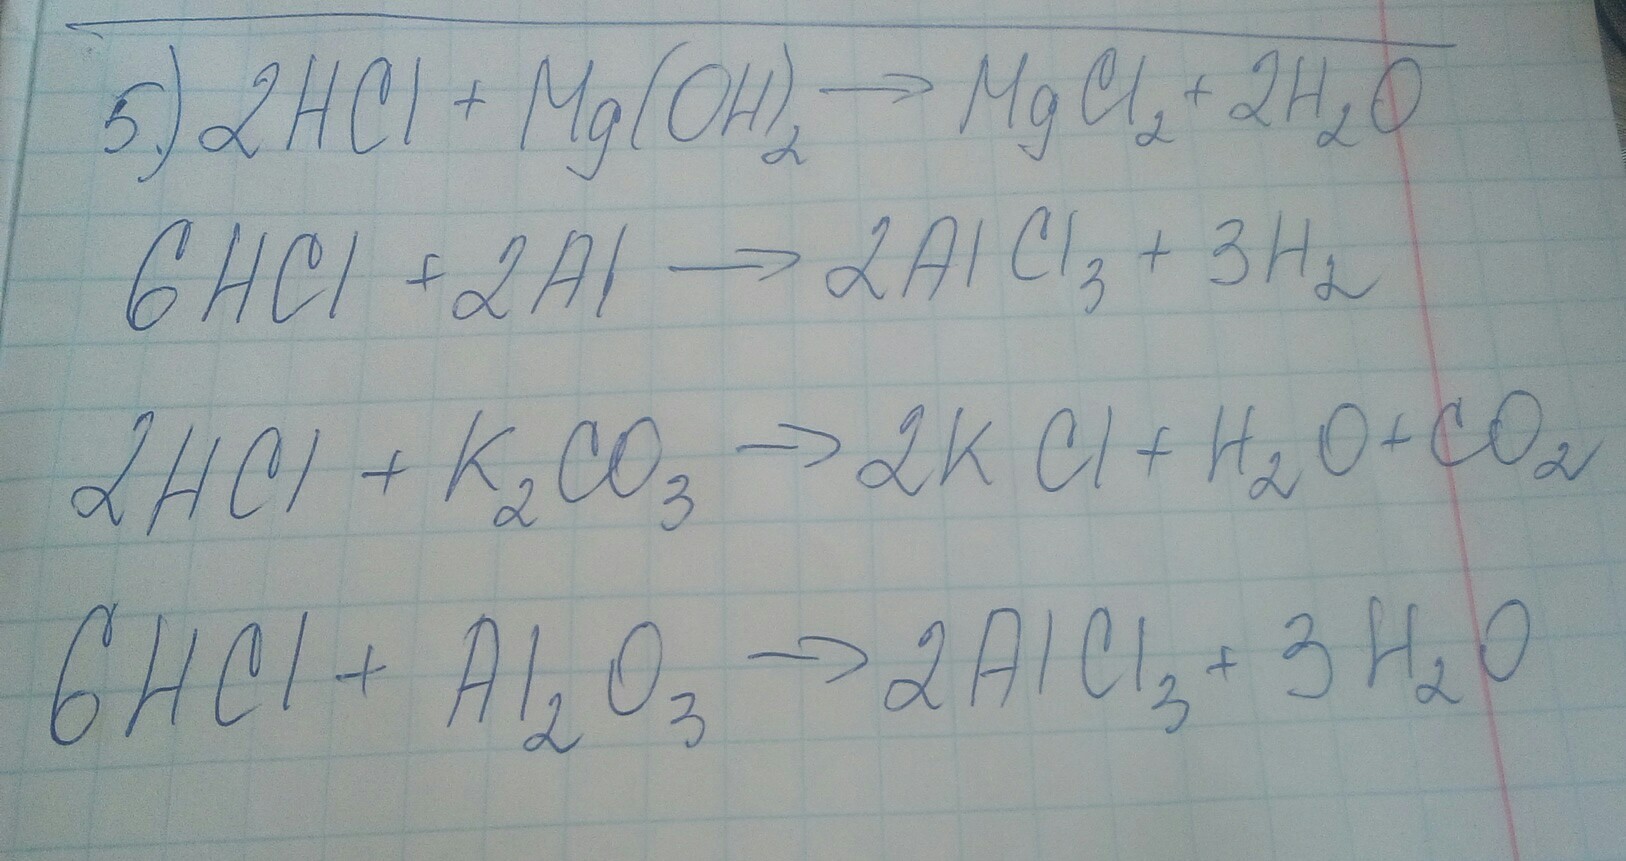 5.) 2HCl + Mg(OH)₂ → MgCl₂ + 2H₂O
6HCl + 2Al → 2AlCl₃ + 3H₂
2HCl + K₂CO₃ → 2KCl + H₂O + CO₂
6HCl + Al₂O₃ → 2AlCl₃ + 3H₂O